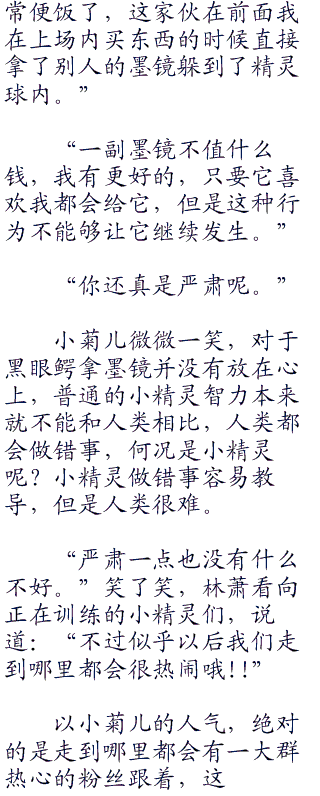 常便饭了，这家伙在前面我
在上场内买东西的时候直接
拿了别人的墨镜躲到了精灵
球内。”
“一副墨镜不值什么
钱，我有更好的，只要它喜
欢我都会给它，但是这种行
为不能够让它继续发生。”
“你还真是严肃呢。”
小菊儿微微一笑，对于
黑眼鳄拿墨镜并没有放在心
上，普通的小精灵智力本来
就不能和人类相比，人类都
会做错事，何况是小精灵
呢？小精灵做错事容易教
导，但是人类很难。
“严肃一点也没有什么
不好。”笑了笑，林萧看向
正在训练的小精灵们，说
道：“不过似乎以后我们走
到哪里都会很热闹哦!!”
以小菊儿的人气，绝对
的是走到哪里都会有一大群
热心的粉丝跟着，这